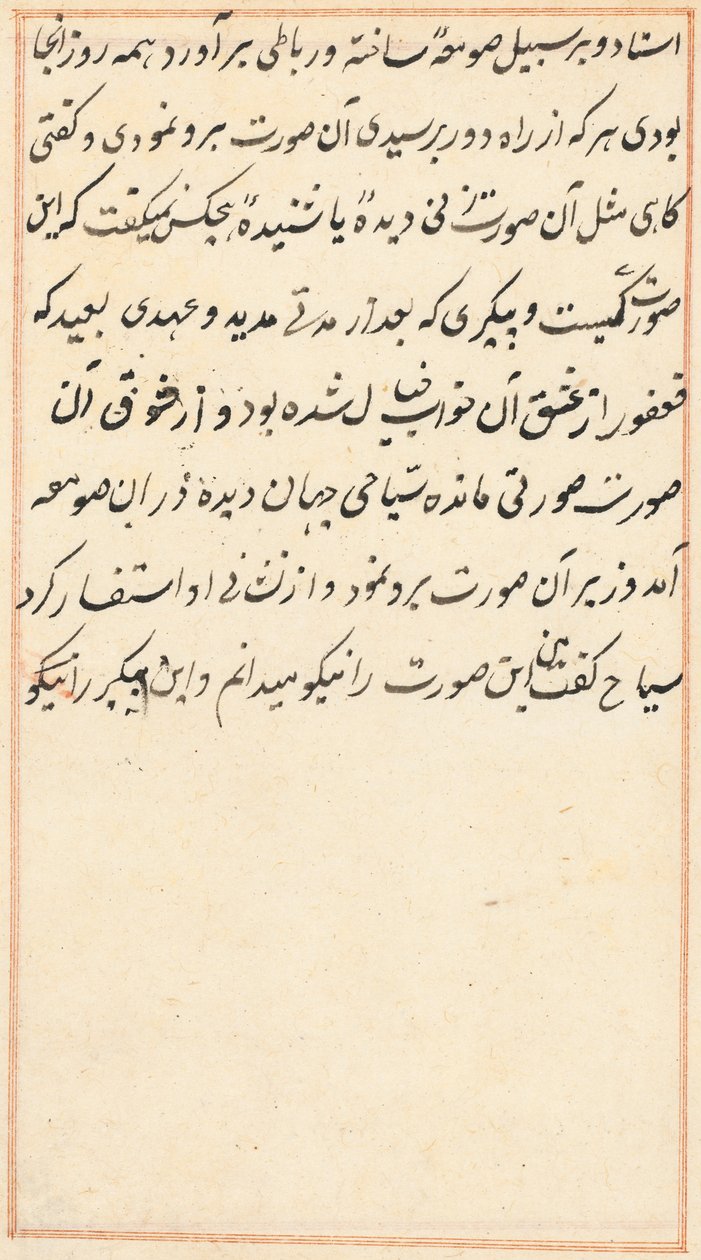 استاد و بر سبیل صومعهٔ ساخته و رباطی برآورد همه روز انجا
بودی هر که از راه دور برسیدی آن صورت برو نمودی و کفتی
کاهی مثل آن صورت زنی دیدهٔ یا شنیدهٔ هیچکس نمیکفت که این
صورت کیست و پیکری که بعد از مدتے مدید و عهدی بعید که
فغفور از عشق آن خواب خیال شده بود و از شوق آن
صورت صورتی مانده سیّاحی جهان دیده در ان صومعه
آمد وزیر آن صورت برو نمود و از نشانی او استفسار کرد
سیاح کفت من این صورت را نیکو میدانم و این پیکر را نیکو